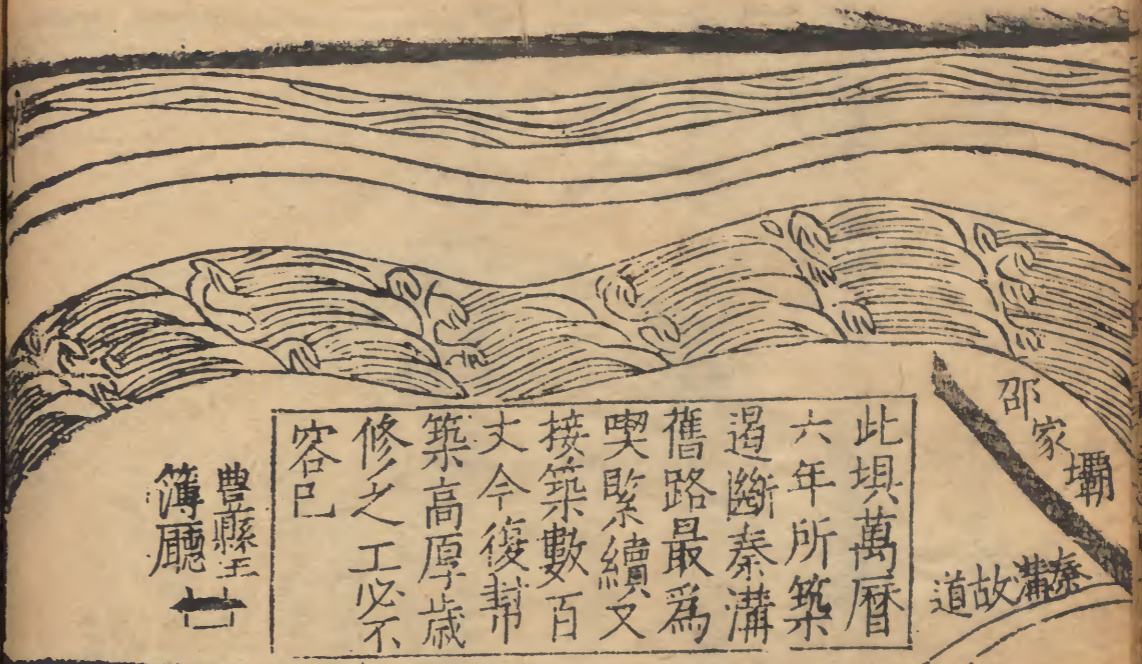 邵家壩
秦溝故道
此埧萬曆
六年所築
遏斷秦溝
舊路最爲
喫緊續又
接築數百
丈今復幇
築高厚歲
修之工必不
容已
豊縣主
簿廳